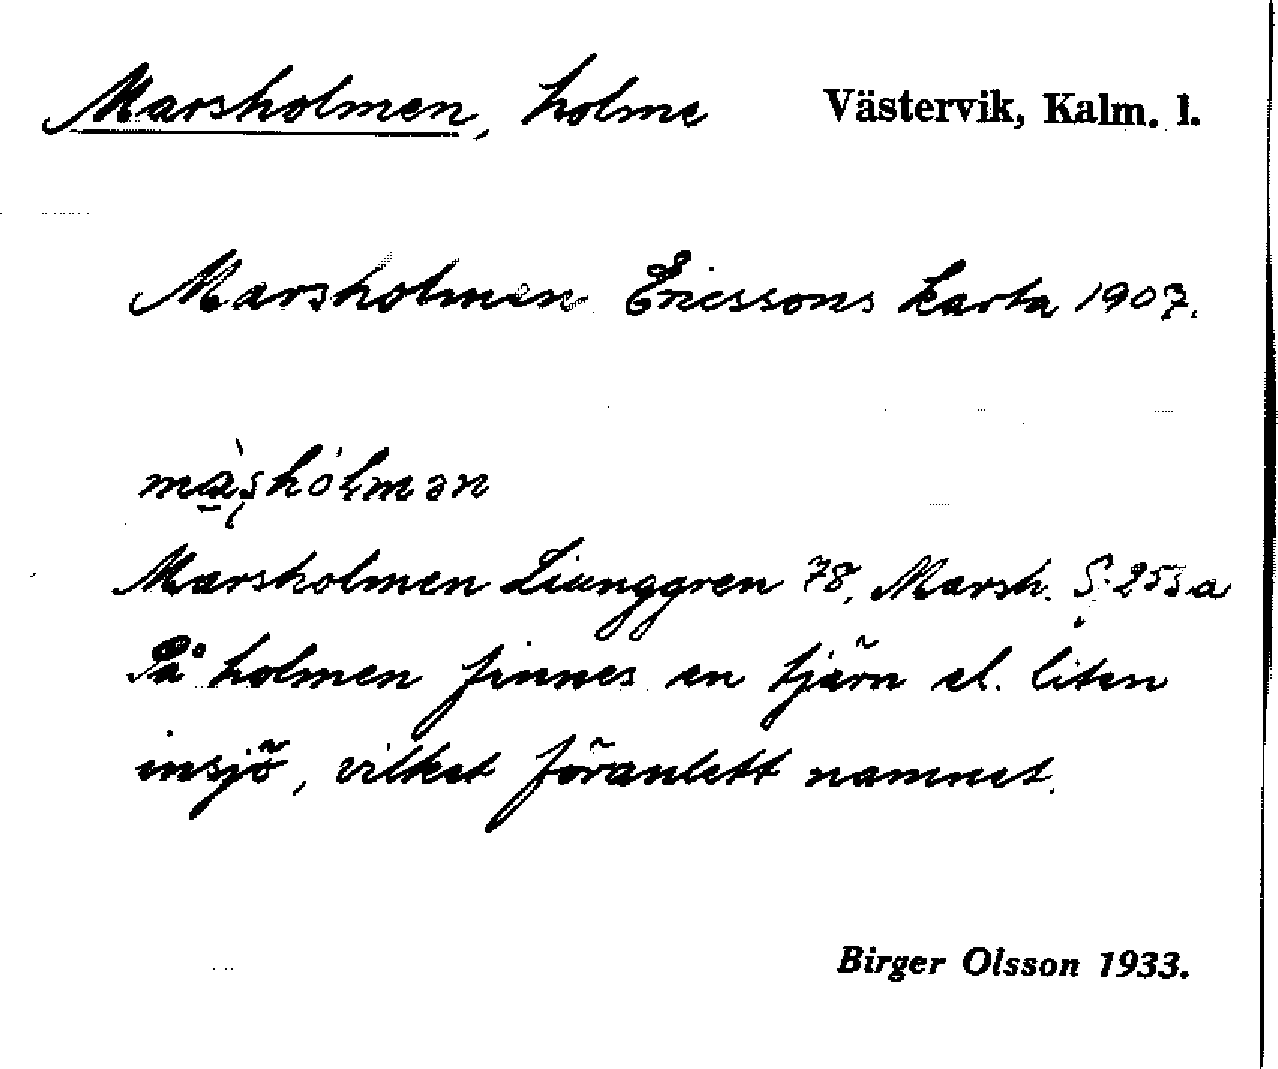 Marsholmen, holme Västervik, Kalm. l.
Marsholmen Ericssons karta 1907.
Marsholmen Liunggren 78, Marsh. S. 253 a
På holmen finnes en tjärn el. liten
insjö, vilket föranlett namnet.
Birger Olsson 1933.